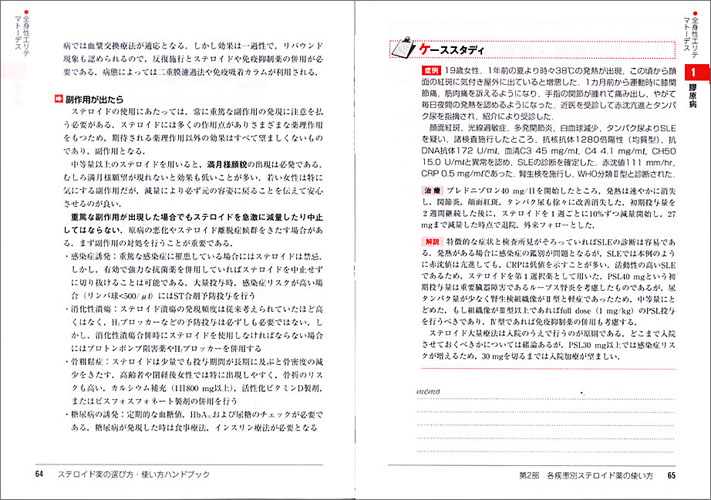 ●全身性エリテ
マトーデス
病では血漿交換療法が適応となる．しかし効果は一過性で，リバウンド
現象も認められるので，反復施行とステロイドや免疫抑制薬の併用が必
要である．病態によっては二重膜濾過法や免疫吸着カラムが利用される．
副作用が出たら
ステロイドの使用にあたっては，常に重篤な副作用の発現に注意を払
う必要がある．ステロイドには多くの作用点がありさまざまな薬理作用
をもつため，期待される薬理作用以外の効果はすべて望ましくないもの
であり，副作用となる．
中等量以上のステロイドを用いると，満月様顔貌の出現は必発である．
むしろ満月様顔貌が現れないと効果も低いことが多い．若い女性は特に
気にする副作用だが，減量により必ず元の容姿に戻ることを伝えて安心
させるのが良い．
重篤な副作用が出現した場合でもステロイドを急激に減量したり中止
してはならない．原病の悪化やステロイド離脱症候群をきたす場合があ
る．まず副作用の対処を行うことが重要である．
・感染症誘発：重篤な感染症に罹患している場合にはステロイドは禁忌．
しかし，有効で強力な抗菌薬を併用していればステロイドを中止せず
に切り抜けることは可能である．大量投与時，感染症リスクが高い場
合（リンパ球<500/μl）にはST合剤予防投与を行う
・消化性潰瘍：ステロイド潰瘍の発現頻度は従来考えられていたほど高
くはなく，H₂ブロッカーなどの予防投与は必ずしも必要ではない．し
かし，消化性潰瘍合併時にステロイドを使用しなければならない場合
にはプロトンポンプ阻害薬やH₂ブロッカーを併用する
・骨粗鬆症：ステロイドは少量でも投与期間が長期に及ぶと骨密度の減
少をきたす．高齢者や閉経後女性では特に出現しやすく，骨折のリス
クも高い．カルシウム補充（1日800 mg以上），活性化ビタミンD製剤，
またはビスフォスフォネート製剤の併用を行う
・糖尿病の誘発：定期的な血糖値，HbA₁cおよび尿糖のチェックが必要で
ある．糖尿病が発現した時は食事療法，インスリン療法が必要となる
64 ステロイド薬の選び方・使い方ハンドブック
●全身性エリテ
マトーデス
1
膠原病
ケーススタディ
症例 19歳女性．1年前の夏より時々38℃の発熱が出現，この頃から顔
面の紅斑に気付き屋外に出ていると増悪した．1カ月前から運動時に膝関
節痛，筋肉痛を訴えるようになり，手指の関節が腫れて痛み出し，やがて
毎日夜間の発熱を認めるようになった．近医を受診して赤沈亢進とタンパ
ク尿を指摘され，紹介により受診した．
顔面紅斑，光線過敏症，多発関節炎，白血球減少，タンパク尿よりSLE
を疑い，諸検査施行したところ，抗核抗体1280倍陽性（均質型），抗
DNA抗体172 U/ml，血清C3 45 mg/ml，C4 4.1 mg/ml，CH50
15.0 U/mlと異常を認め，SLEの診断を確定した．赤沈値111 mm/hr，
CRP 0.5 mg/mlであった．腎生検を施行し，WHO分類Ⅱ型と診断された．
治療 プレドニゾロン40 mg/日を開始したところ，発熱は速やかに消失
し，関節炎，顔面紅斑，タンパク尿も徐々に改善消失した．初期投与量を
2週間継続した後に，ステロイドを1週ごとに10%ずつ減量開始し，27
mgまで減量した時点で退院，外来フォローとした．
解説 特徴的な症状と検査所見がそろっていればSLEの診断は容易であ
る．発熱がある場合に感染症の鑑別が問題となるが，SLEでは本例のよう
に赤沈値は亢進しても，CRPは低値を示すことが多い．活動性の高いSLE
であるため，ステロイドを第1選択薬として用いた．PSL40 mgという初
期投与量は重要臓器障害であるループス腎炎を考慮したものであるが，尿
タンパク量が少なく腎生検組織像がⅡ型と軽症であったため，中等量にと
どめた．もし組織像がⅢ型以上であればfull dose（1 mg/kg）のPSL投与
を行うべきであり，Ⅳ型であれば免疫抑制薬の併用も考慮する．
ステロイド大量療法は入院のうえで行うのが原則である．どこまで入院
させておくべきかについては緒論あるが，PSL30 mg以上では感染症リス
クが増えるため，30 mgを切るまでは入院加療が望ましい．
memo
第2部 各疾患別ステロイド薬の使い方 65